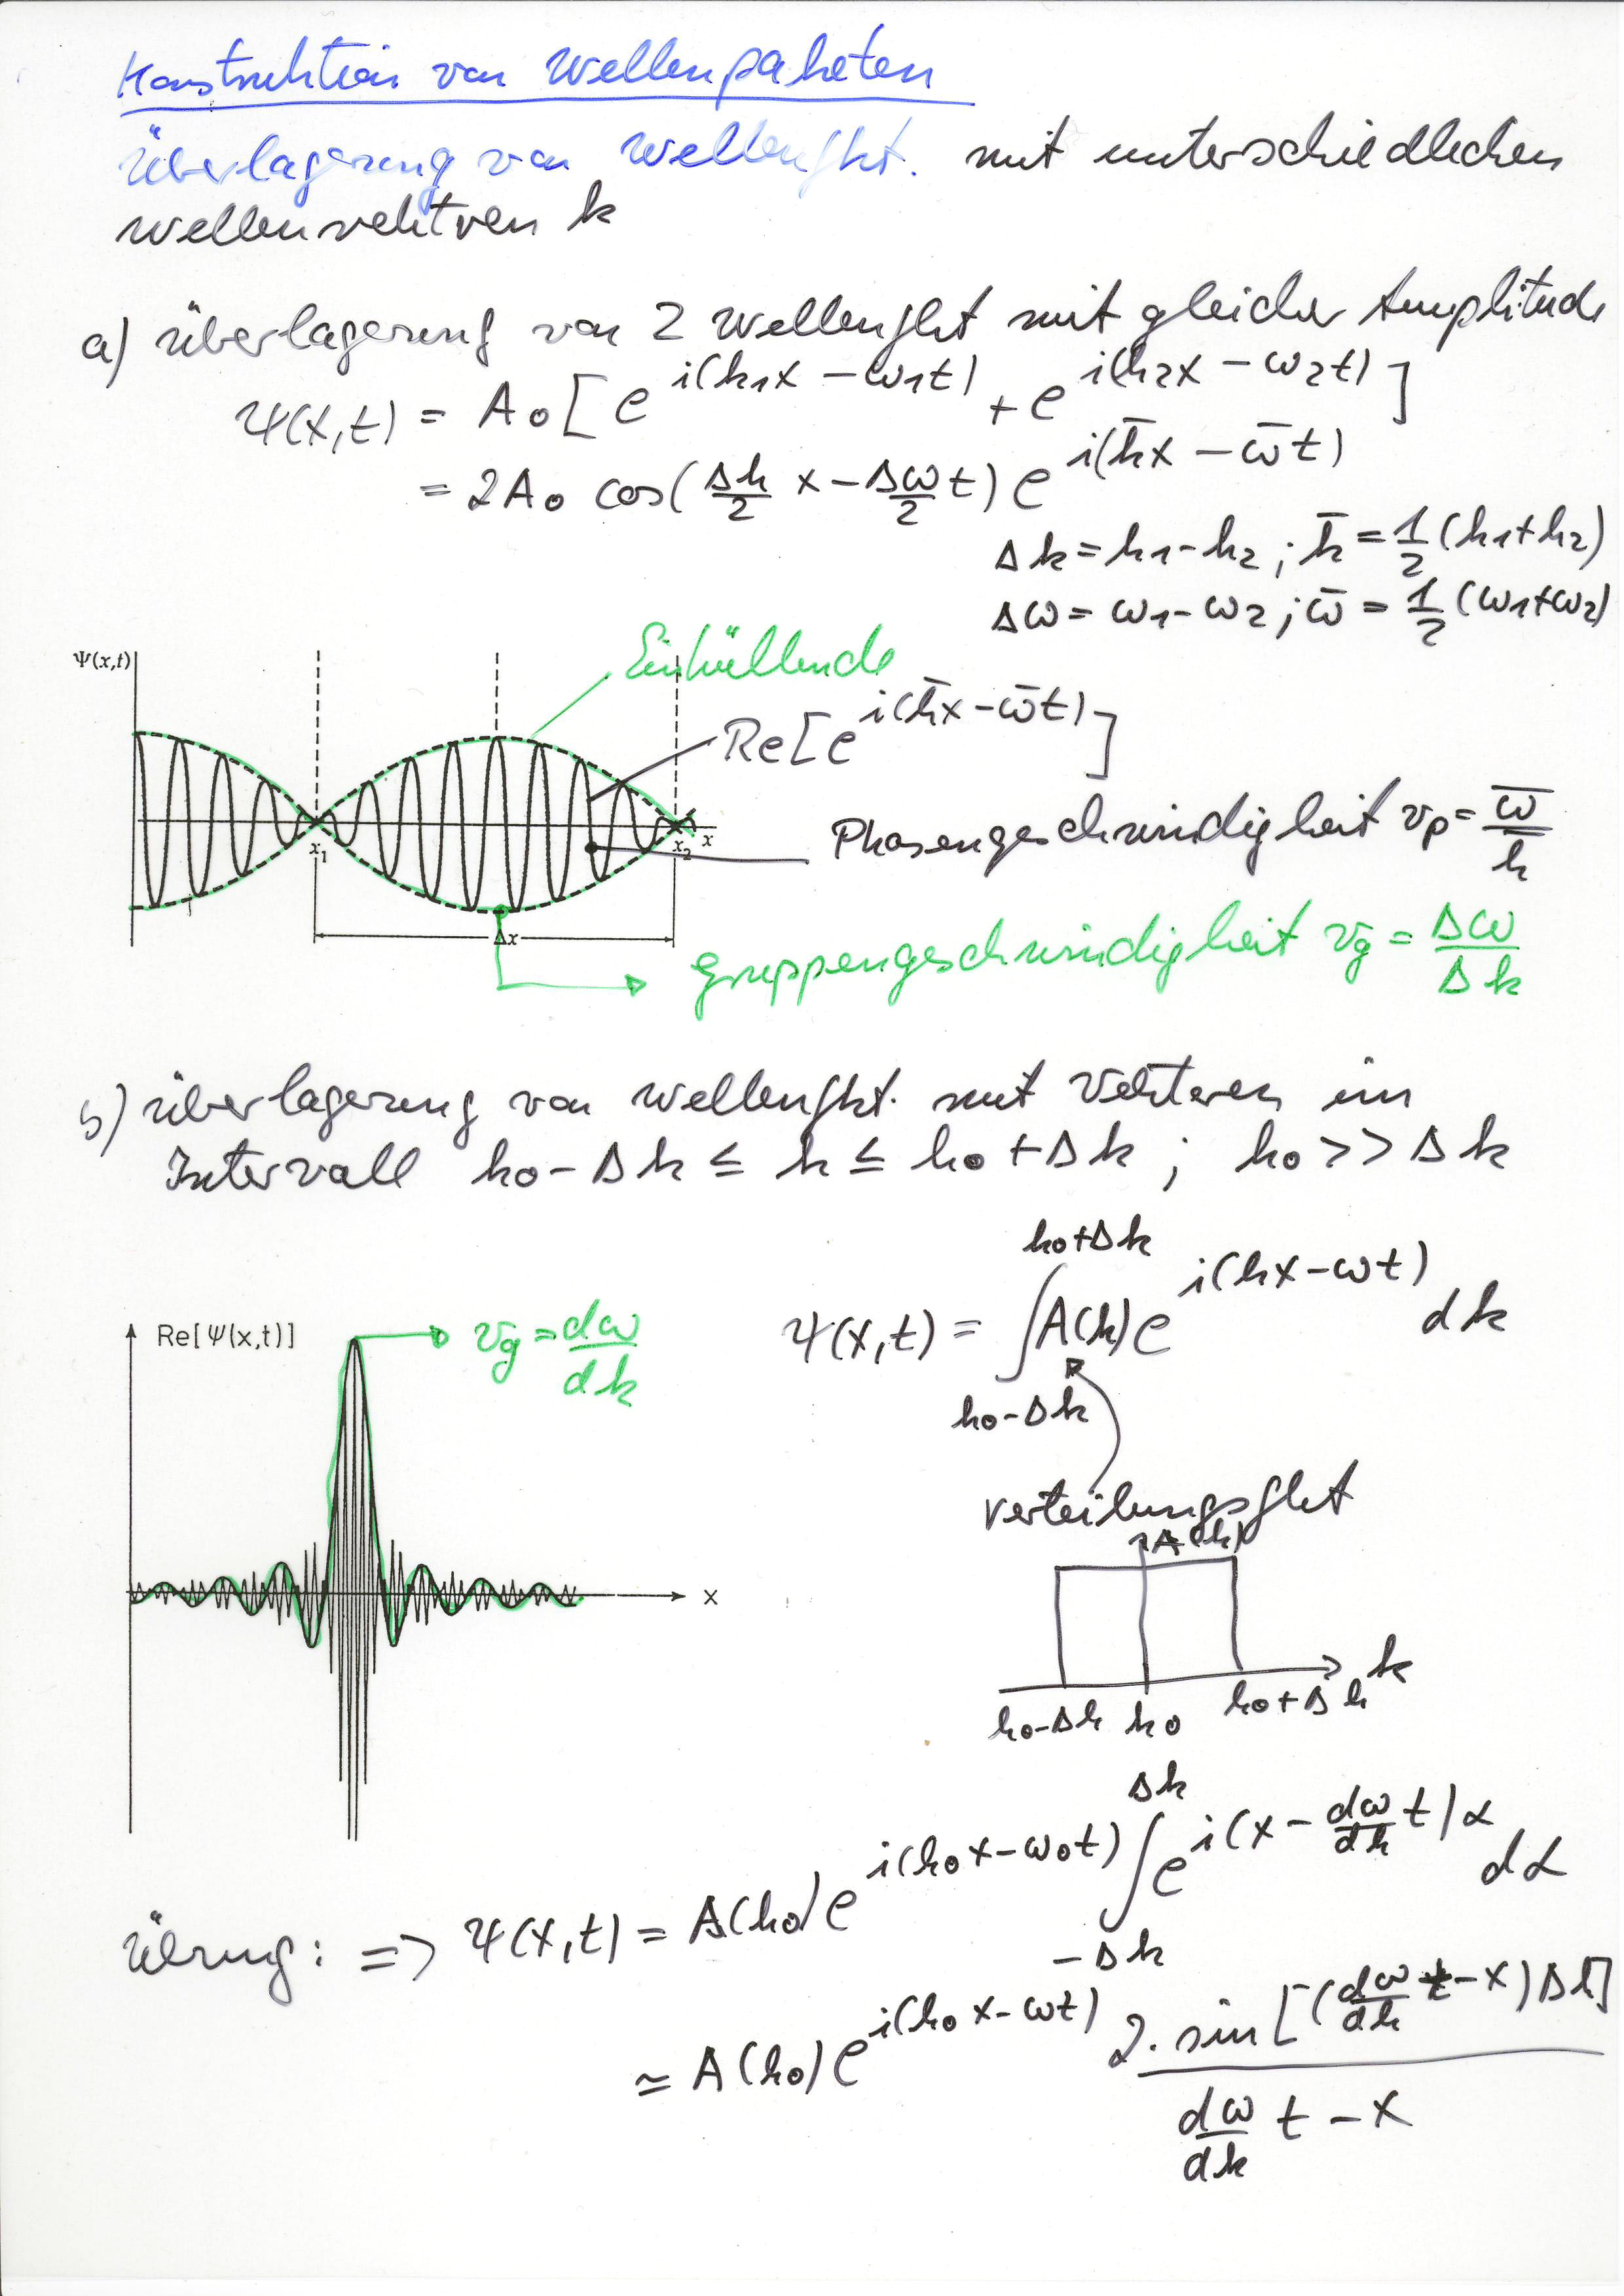 Konstruktion von Wellenpaketen
Überlagerung von Wellenfkt. mit unterschiedlichen
Wellenvektoren k
a) Überlagerung von 2 Wellenfkt mit gleicher Amplitude
Ψ(x,t) = A₀ [ e^{i(k₁x − ω₁t)} + e^{i(k₂x − ω₂t)} ]
= 2A₀ cos(Δk/2 x − Δω/2 t) e^{i(k̄x − ω̄t)}
Δk = k₁ − k₂ ; k̄ = 1/2 (k₁+k₂)
Δω = ω₁ − ω₂ ; ω̄ = 1/2 (ω₁+ω₂)
Einhüllende
Ψ(x,t)
Re[e^{i(k̄x − ω̄t)}]
x₁ x₂ x
Phasengeschwindigkeit vp = ω̄/k̄
Δx
Gruppengeschwindigkeit vg = Δω/Δk
b) Überlagerung von Wellenfkt. mit Vektoren im
Intervall k₀ − Δk ≤ k ≤ k₀ + Δk ; k₀ >> Δk
Ψ(x,t) = ∫_{k₀−Δk}^{k₀+Δk} A(k) e^{i(kx−ωt)} dk
Re[Ψ(x,t)]
vg = dω/dk
x
Verteilungsfkt
A(k)
k
k₀−Δk k₀ k₀+Δk
Übung: => Ψ(x,t) = A(k₀) e^{i(k₀x−ω₀t)} ∫_{−Δk}^{Δk} e^{i(x − dω/dk t)α} dα
≃ A(k₀) e^{i(k₀x−ωt)} 2·sin[(dω/dk t − x)Δk] / (dω/dk t − x)